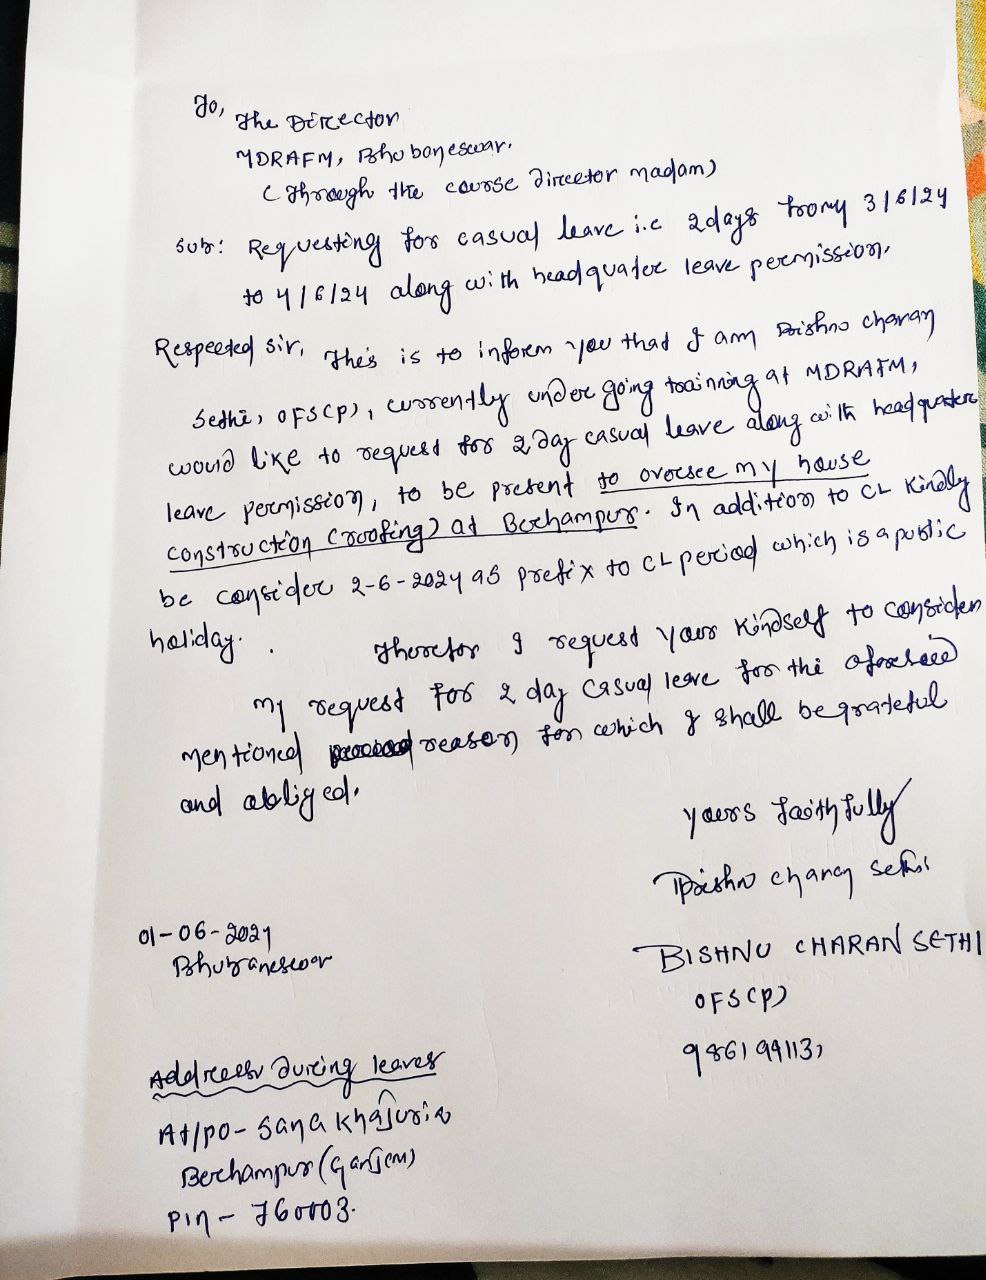 To,
The Director
MDRAFM, Bhubaneswar.
(Through the course Director madam)
Sub: Requesting for casual leave i.e 2days from 3/6/24
to 4/6/24 along with headquater leave permission.
Respected Sir, This is to inform you that I am Bishnu charan
Sethi, OFS(P), currently under going trainning at MDRAFM,
would like to request for 2 day casual leave along with headquater
leave permission, to be present to oversee my house
construction (roofing) at Berhampur. In addition to CL Kindly
be consider 2-6-2024 as prefix to CL period which is a public
holiday.
Therefor I request your kindself to consider
my request for 2 day casual leave for the aforesaid
mentioned reason for which I shall be grateful
and obliged.
yours faithfully
Bishnu charan sethi
01-06-2024
Bhubaneswar
BISHNU CHARAN SETHI
OFS(P)
Address During leaves
At/po- Sana Khajuria
Berhampur (Ganjam)
Pin - 760003.